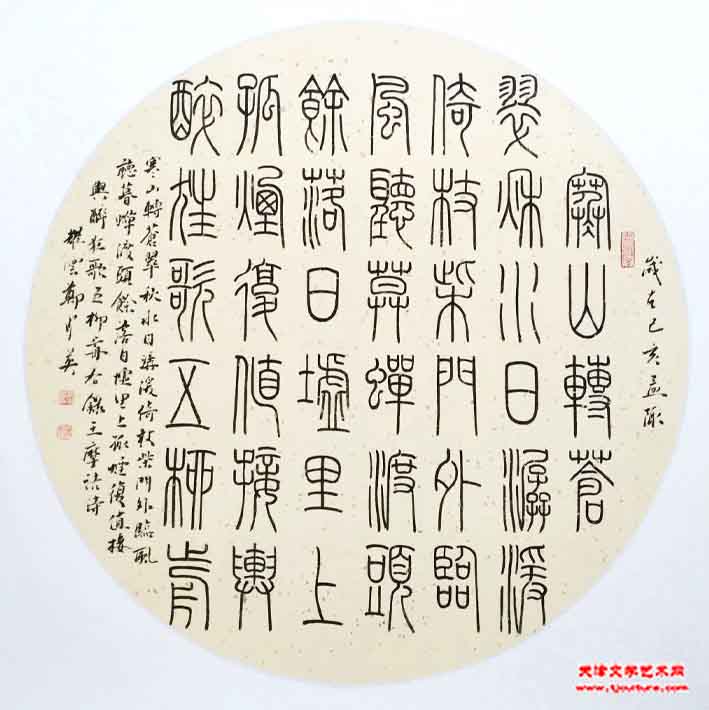 歲在己亥孟
寒山轉蒼
翠秋水日潺湲
倚杖柴門外臨
風聽暮蟬渡頭
餘落日墟里上
孤煙復值接輿
醉狂歌五柳前
寒山轉蒼翠秋水日潺湲倚杖柴門外臨風
聽暮蟬渡頭餘落日墟里上孤煙復值接
輿醉狂歌五柳前右錄王摩詰诗
雲鄭英
天津文学艺术网
www.tjculture.com